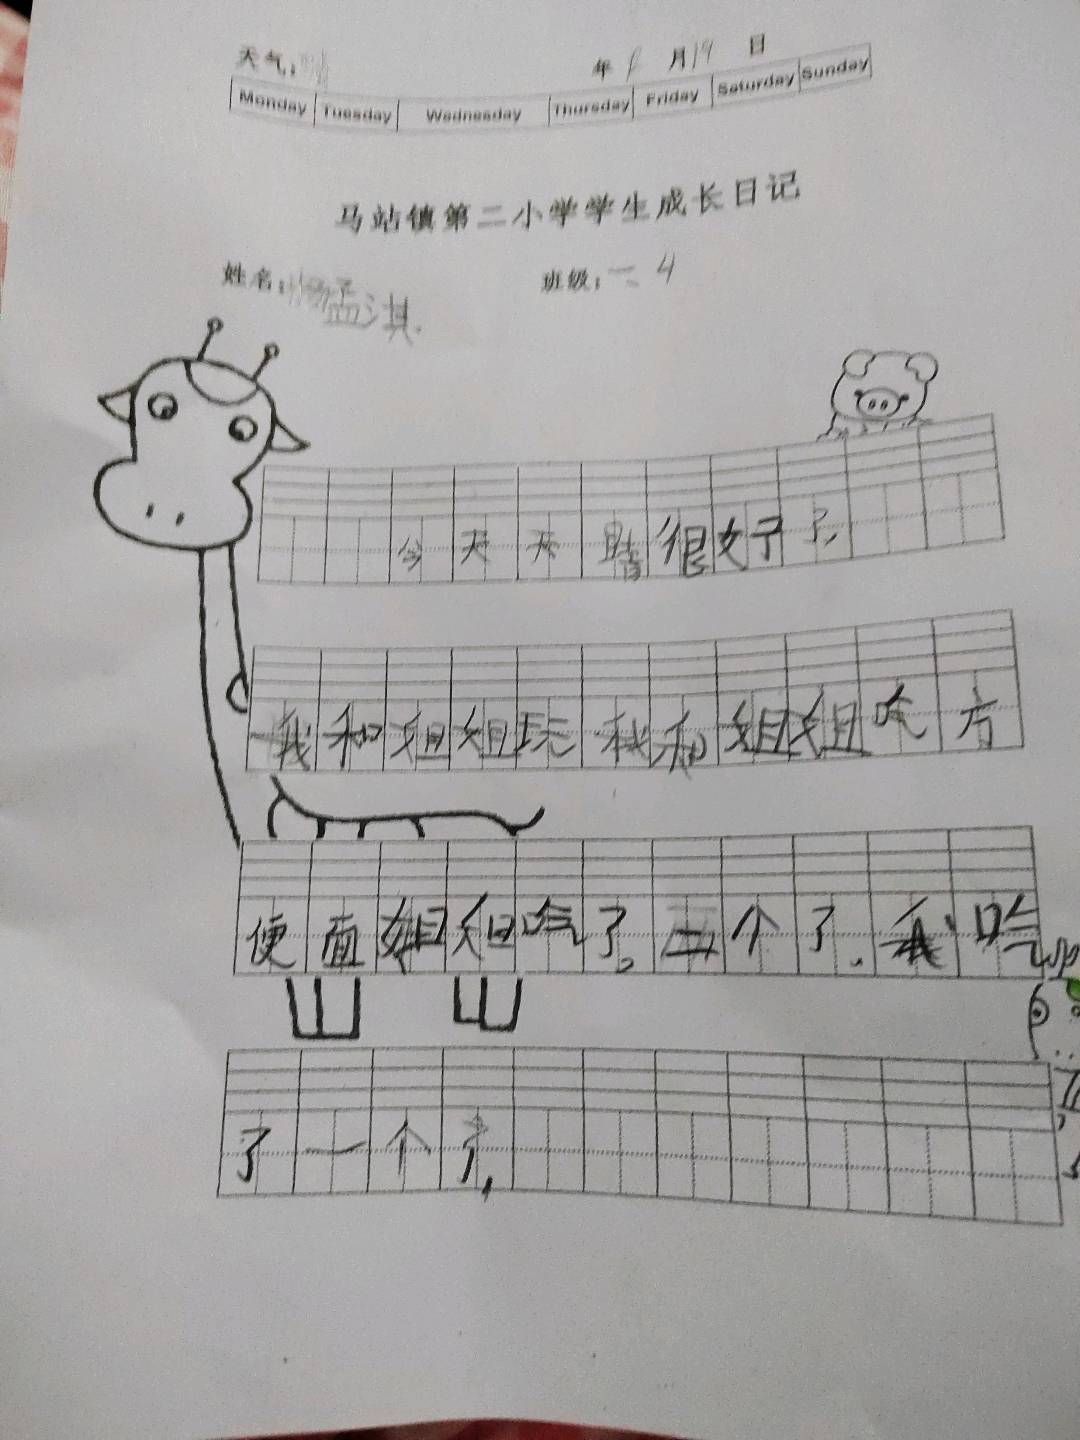 天气：晴 年 8 月19 日
Monday Tuesday Wednesday Thursday Friday Saturday Sunday
马站镇第二小学学生成长日记
姓名：杨孟淇. 班级：二.4
今天天晴很好了,
我和姐姐玩我和姐姐吃方
便面姐姐吃了。五个了.我吃
了一个了,